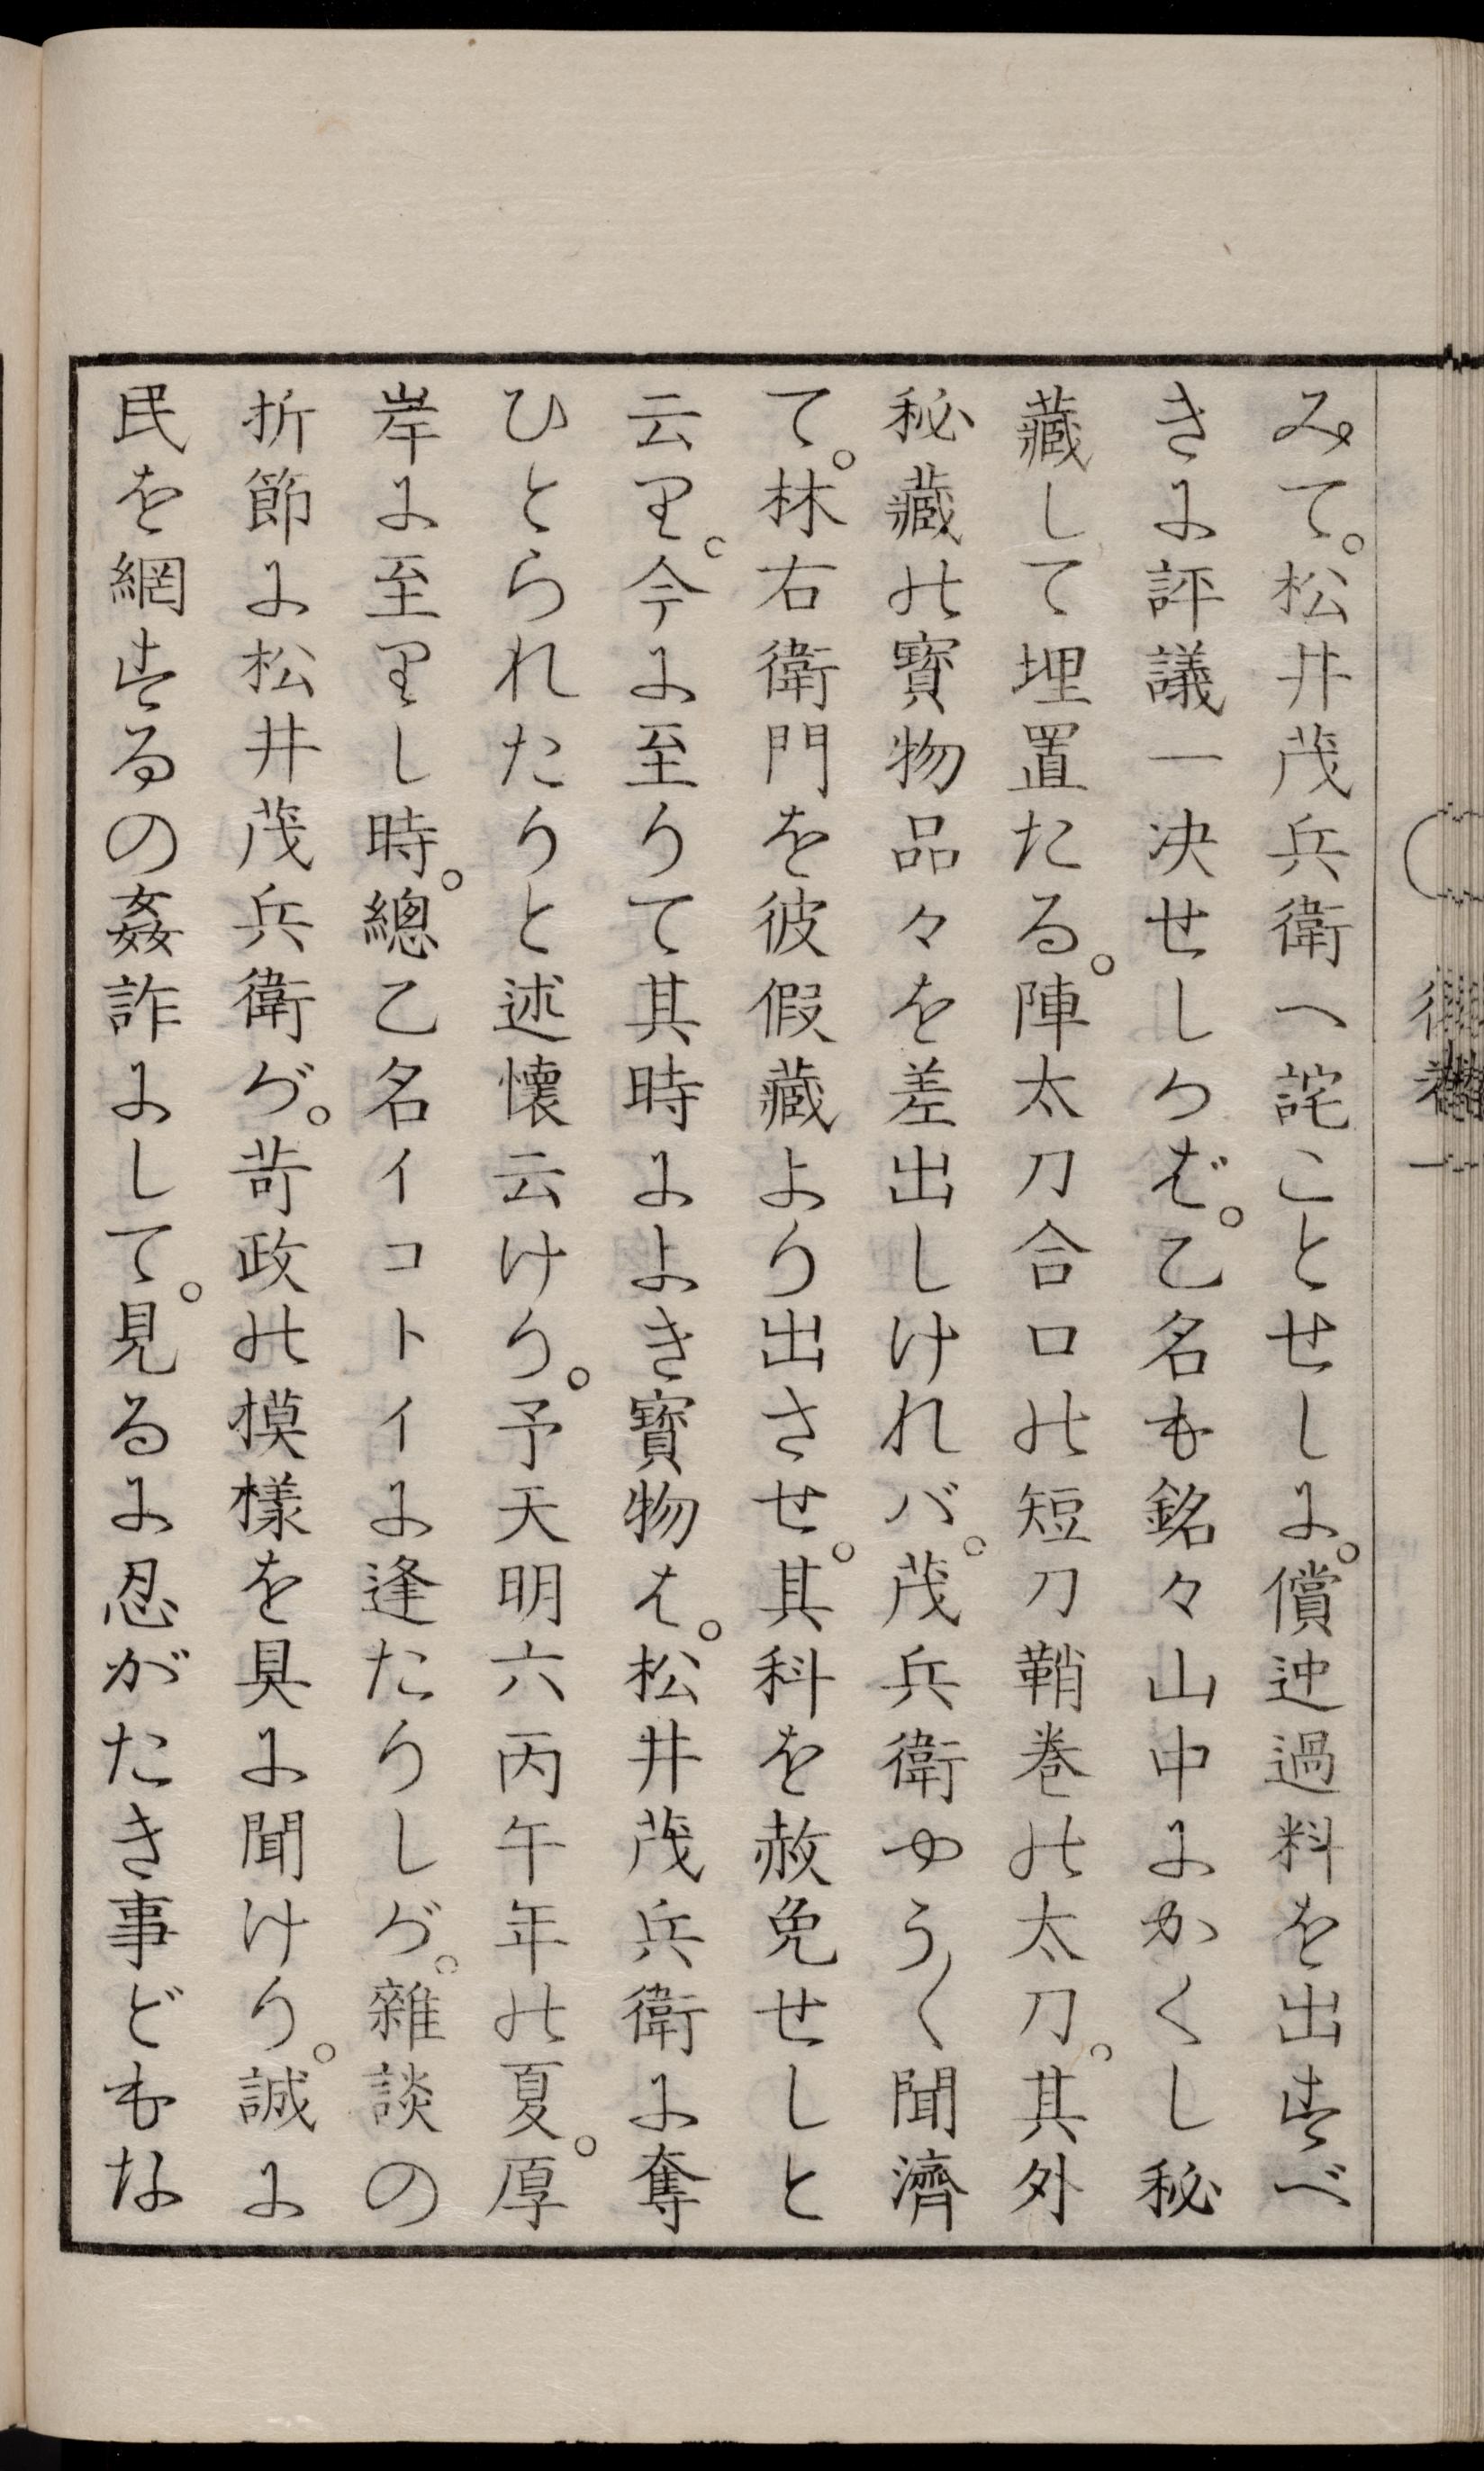 みて。松井茂兵衛へ詫ことせしに。償迚過料を出すべ
きに評議一决せしかば。乙名も銘々山中にかくし秘
藏して埋置たる。陣太刀合口の短刀鞘巻の太刀。其外
秘藏の寳物品々を差出しければ。茂兵衛やう〱聞濟
て。林右衛門を彼假藏より出させ。其科を赦免せしと
云り。今に至りて其時によき寳物は。松井茂兵衛に奪
ひとられたりと述懷云けり。予天明六丙午年の夏。厚
岸に至りし時。總乙名イコトイに逢たりしが。雜談の
折節に松井茂兵衛が。苛政の摸樣を具に聞けり。誠に
民を網するの姦詐にして。見るに忍がたき事どもな